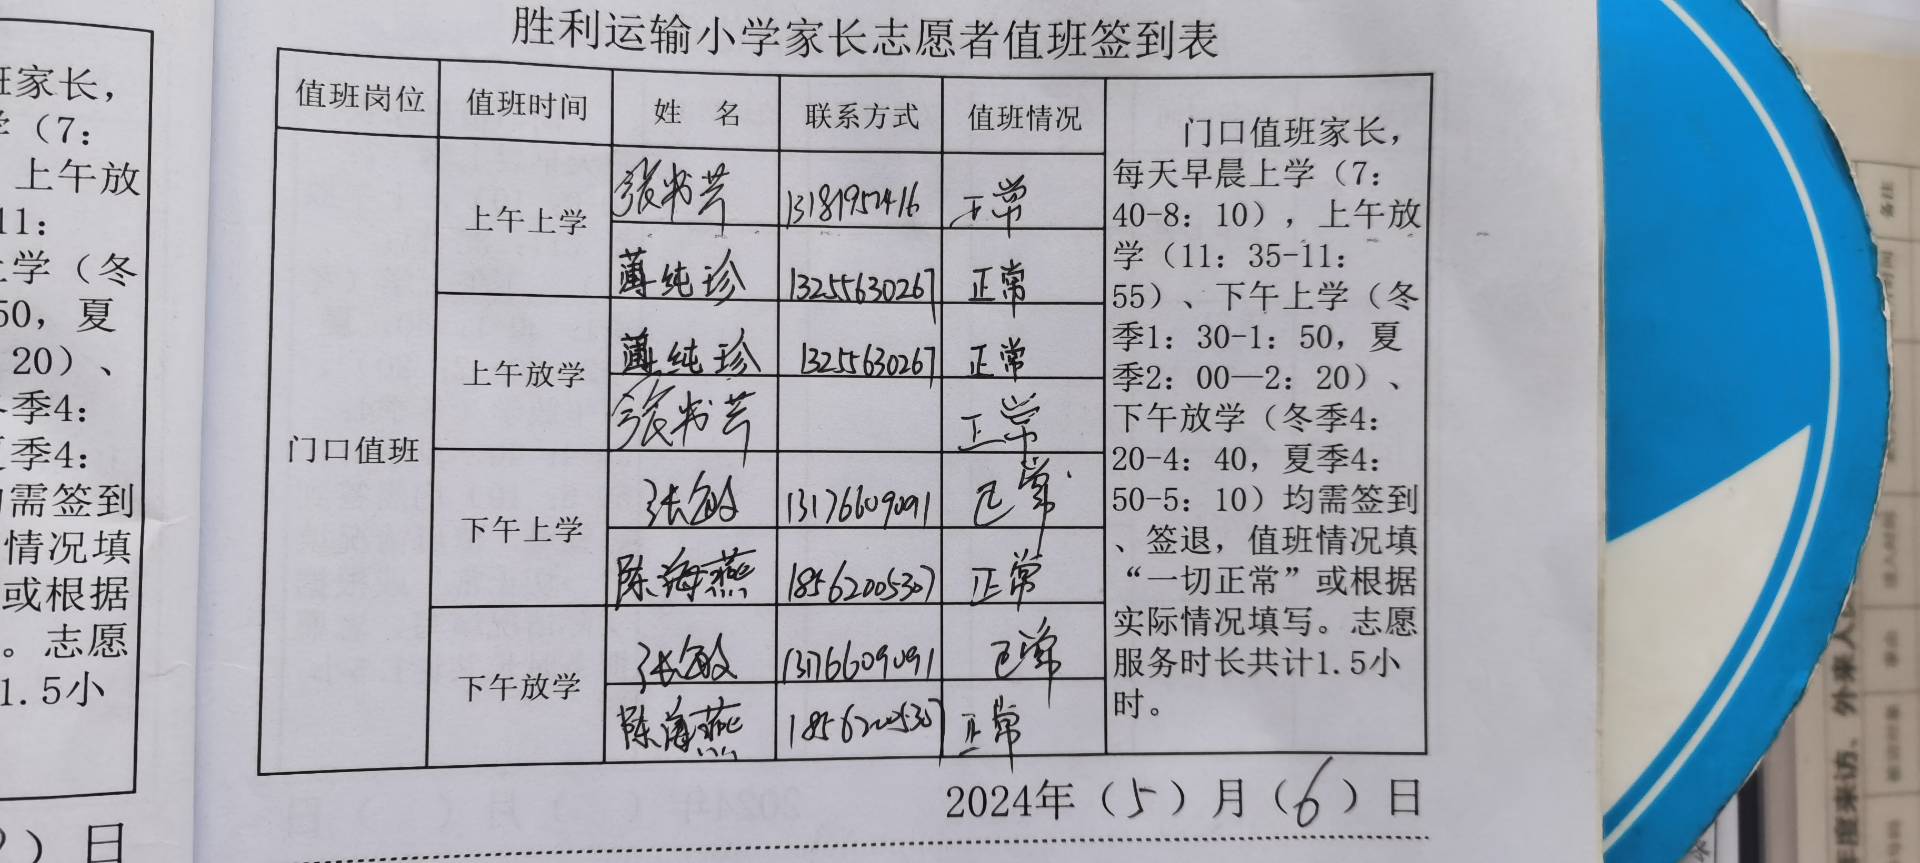 胜利运输小学家长志愿者值班签到表
值班岗位 值班时间 姓 名 联系方式 值班情况
门口值班
上午上学
张书芳 13181952416 正常
薄纯珍 13255630267 正常
上午放学
薄纯珍 13255630267 正常
张书芳 正常
下午上学
张敏 13176609091 正常
陈海燕 18562005307 正常
下午放学
张敏 13176609091 正常
陈海燕 18562005307 正常
门口值班家长，
每天早晨上学（7：
40-8：10），上午放
学（11：35-11：
55）、下午上学（冬
季1：30-1：50，夏
季2：00—2：20）、
下午放学（冬季4：
20-4：40，夏季4：
50-5：10）均需签到
、签退，值班情况填
“一切正常”或根据
实际情况填写。志愿
服务时长共计1.5小
时。
2024年（5）月（6）日
班家长，
学（7：
上午放
11：
上学（冬
50，夏
20）、
冬季4：
夏季4：
均需签到
情况填
或根据
。志愿
1.5小
）日